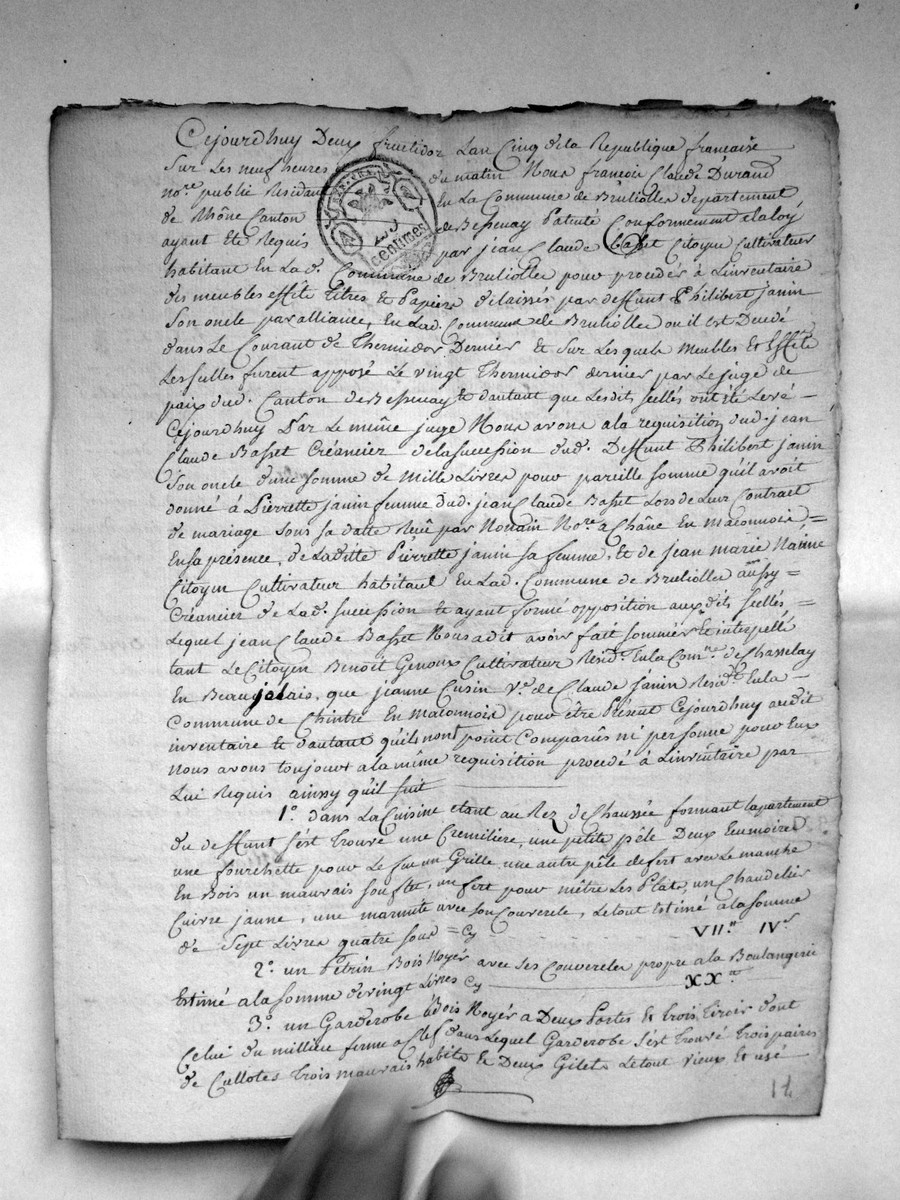 Cejourdhuy Deux fructidor Lan Cinq dela Republique francaise
Sur Les neuf heures du matin Nous francois Claude Durand
no.re public Residant En La Commune de Brulioles departement
de Rhône Canton de Bessenay Patente Conformement alaloy
ayant Eté Requis par jean Claude Basset Citoyen Cultivateur
habitant En Lad. Commune de Brulioles pour procéder à Linventaire
des meubles effêts titres et Papiers delaissés par deffunt Philibert janin
Son oncle par alliance, En Lad. Commune de Brulioles ou il est Decedé
dans Le Courant de Thermidor Dernier et Sur Les quels Meubles Et Effêts
Les sellés furent apposé Le vingt Thermidor dernier par Le juge de
paix dud. Canton de Bessenay Et dautant que Lesdits scellés ont été Levé
Cejourdhuy Par Le même juge Nous avons ala requisition dud. jean
Claude Basset Créancier dela succession dud. Deffunt Philibert janin
Son oncle d'une somme de Mille Livres pour pareille somme quil avoit
donné à Pierrette janin femme dud. jean Claude Basset Lors de Leur Contract
de mariage sous sa datte Reçû par No.re a Châne En maconnois =
En sa présence, de Laditte Pierrette janin sa femme, Et de jean marie
Citoyen Cultivateur habitant En Lad. Commune de Brulioles aussy =
Créancier de Lad. succession Et ayant formé opposition aux dits scellés =
Lequel jean Claude Basset Nous a dit avoir fait sommer Et interpellé
tant Le Citoyen Benoit Genoux Cultivateur Resid.t En la Com.ne de Chasselay
En Beaujolais, que jeanne Cusin V.e de Claude janin Resid.te En la
Commune de Chintré En Maconnois pour être Présent Cejourdhuy audit
inventaire Et dautant qu'ils nont point Comparûs ni personne pour Eux
Nous avons toujours a la même requisition procedé à Linventaire par
Lui Requis ainssy quil suit
1.° dans La Cuisine etant au Rez de Chaussée formant lapartement
du deffunt s'est trouvé une Cremiliere, une petite pêle Deux Ecumoires
une fourchette pour Le feu un Grille une autre pêle de fert avec Le manche
En Bois un mauvais souflet, un fert pour mêtre Les Plats, un Chandelier
Cuivre jaune, une marmite avec son Couvercle, Le tout Estimé ala somme
de Sept Livres quatre sous = Cy VII.# IV.s
2.° un Pétrin Bois Noyer avec ses Couvercles propre a la Boulangerie
Estimé a la somme de vingt Livres Cy XX.#
3.° un Garderobe Bois Noyer a Deux Portes Et trois tiroir dont
Celui du millieu ferme a Clef dans Lequel Garderobe s'est trouvé trois paires
de Cullotes trois mauvais habits Et Deux Gilets Le tout vieux Et usé